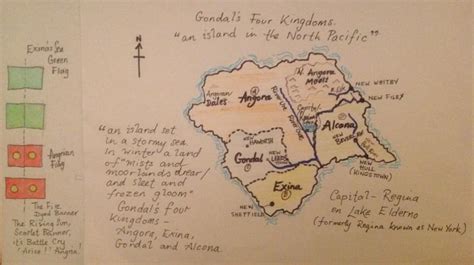 Gondal's Four Kingdoms.
"an island in the North Pacific"
Exina's
Green
Flag
Angrian
Flag
The Fire
Dyed Banner
The Rising Sun,
Scarlet Banner,
it's Battle Cry
'Arise!' Angria!
N
"an island set
in a stormy sea
in winter a land
of "mists and
moorlands drear/
and sleet and
frozen gloom"
Gondal's four
Kingdoms -
Angora, Exina,
Gondal and Alcona.
Angrian
Dales
Angora
N. Angora
Moors
NEW WHITBY
NEW FILEY
Capital
Alcona
NEW
BEVERLEY
NEW
HULL
(KINGSTOWN)
HAWORTH
Gondal
NEW
LEEDS
Exina
NEW
SHEFFIELD
Capital - Regina
on Lake Elderno
(formerly Regina known as New York)